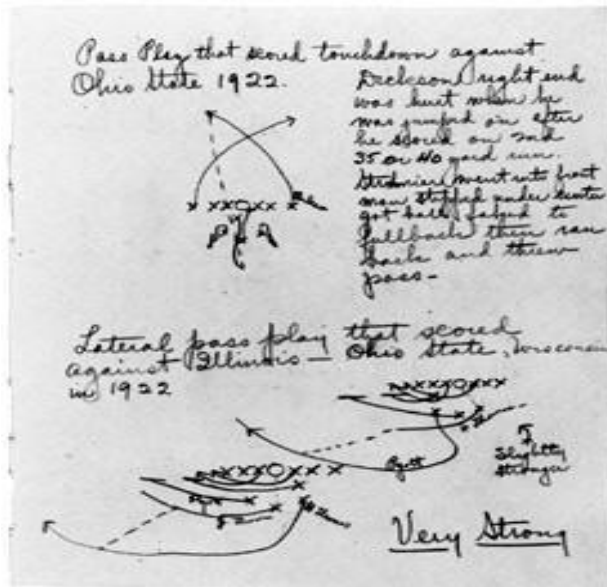 Pass Play that scored touchdown against
Ohio State 1922.
right end
was hurt when he
was jumped on after
he scored on 2nd
35 or 40 yard run.
went into front
man stepped under center
got ball, faked to
fullback then ran
back and threw
pass-
Lateral pass play that scored
against Illinois - Ohio State, Wisconsin
in 1922
Slightly
stronger
Very Strong